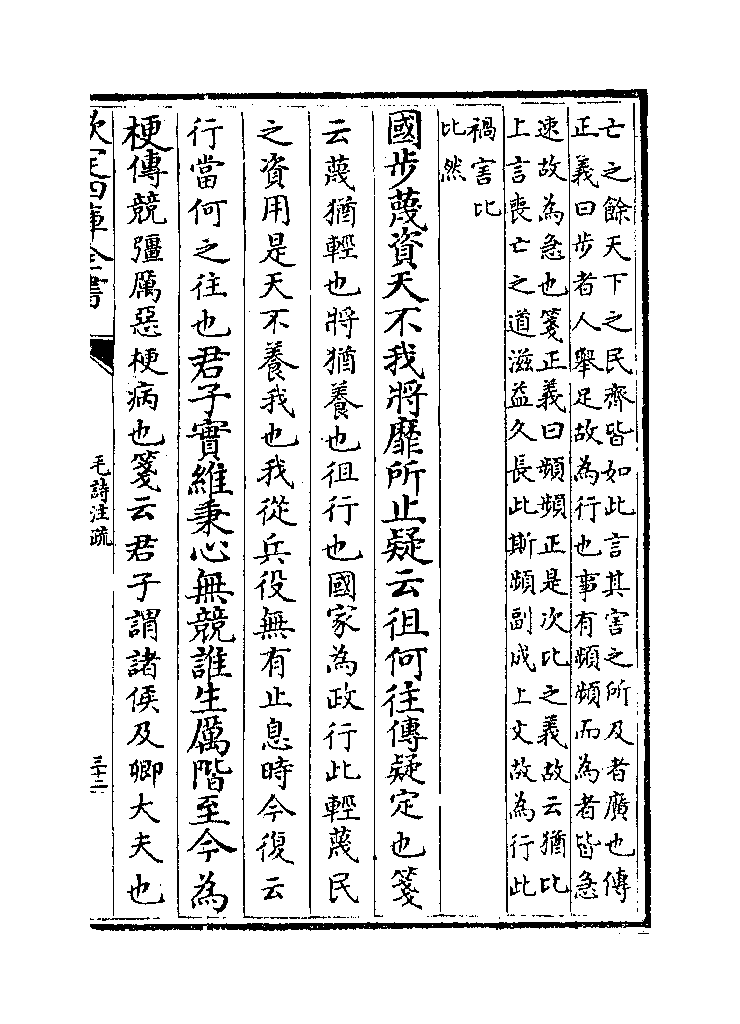 亡之餘天下之民齊皆如此言其害之所及者廣也傳
正義曰步者人舉足故為行也事有頻頻而為者皆急
速故為急也箋正義曰頻頻正是次比之義故云猶比
上言喪亡之道滋益久長此斯頻副成上文故為行此
禍害比
比然
國步蔑資天不我將靡所止疑云徂何往傳疑定也箋
云蔑猶輕也將猶養也徂行也國家為政行此輕蔑民
之資用是天不養我也我從兵役無有止息時今復云
行當何之往也君子實維秉心無競誰生厲階至今為
梗傳競彊厲惡梗病也箋云君子謂諸侯及卿大夫也
欽定四庫全書
毛詩注疏
三十二